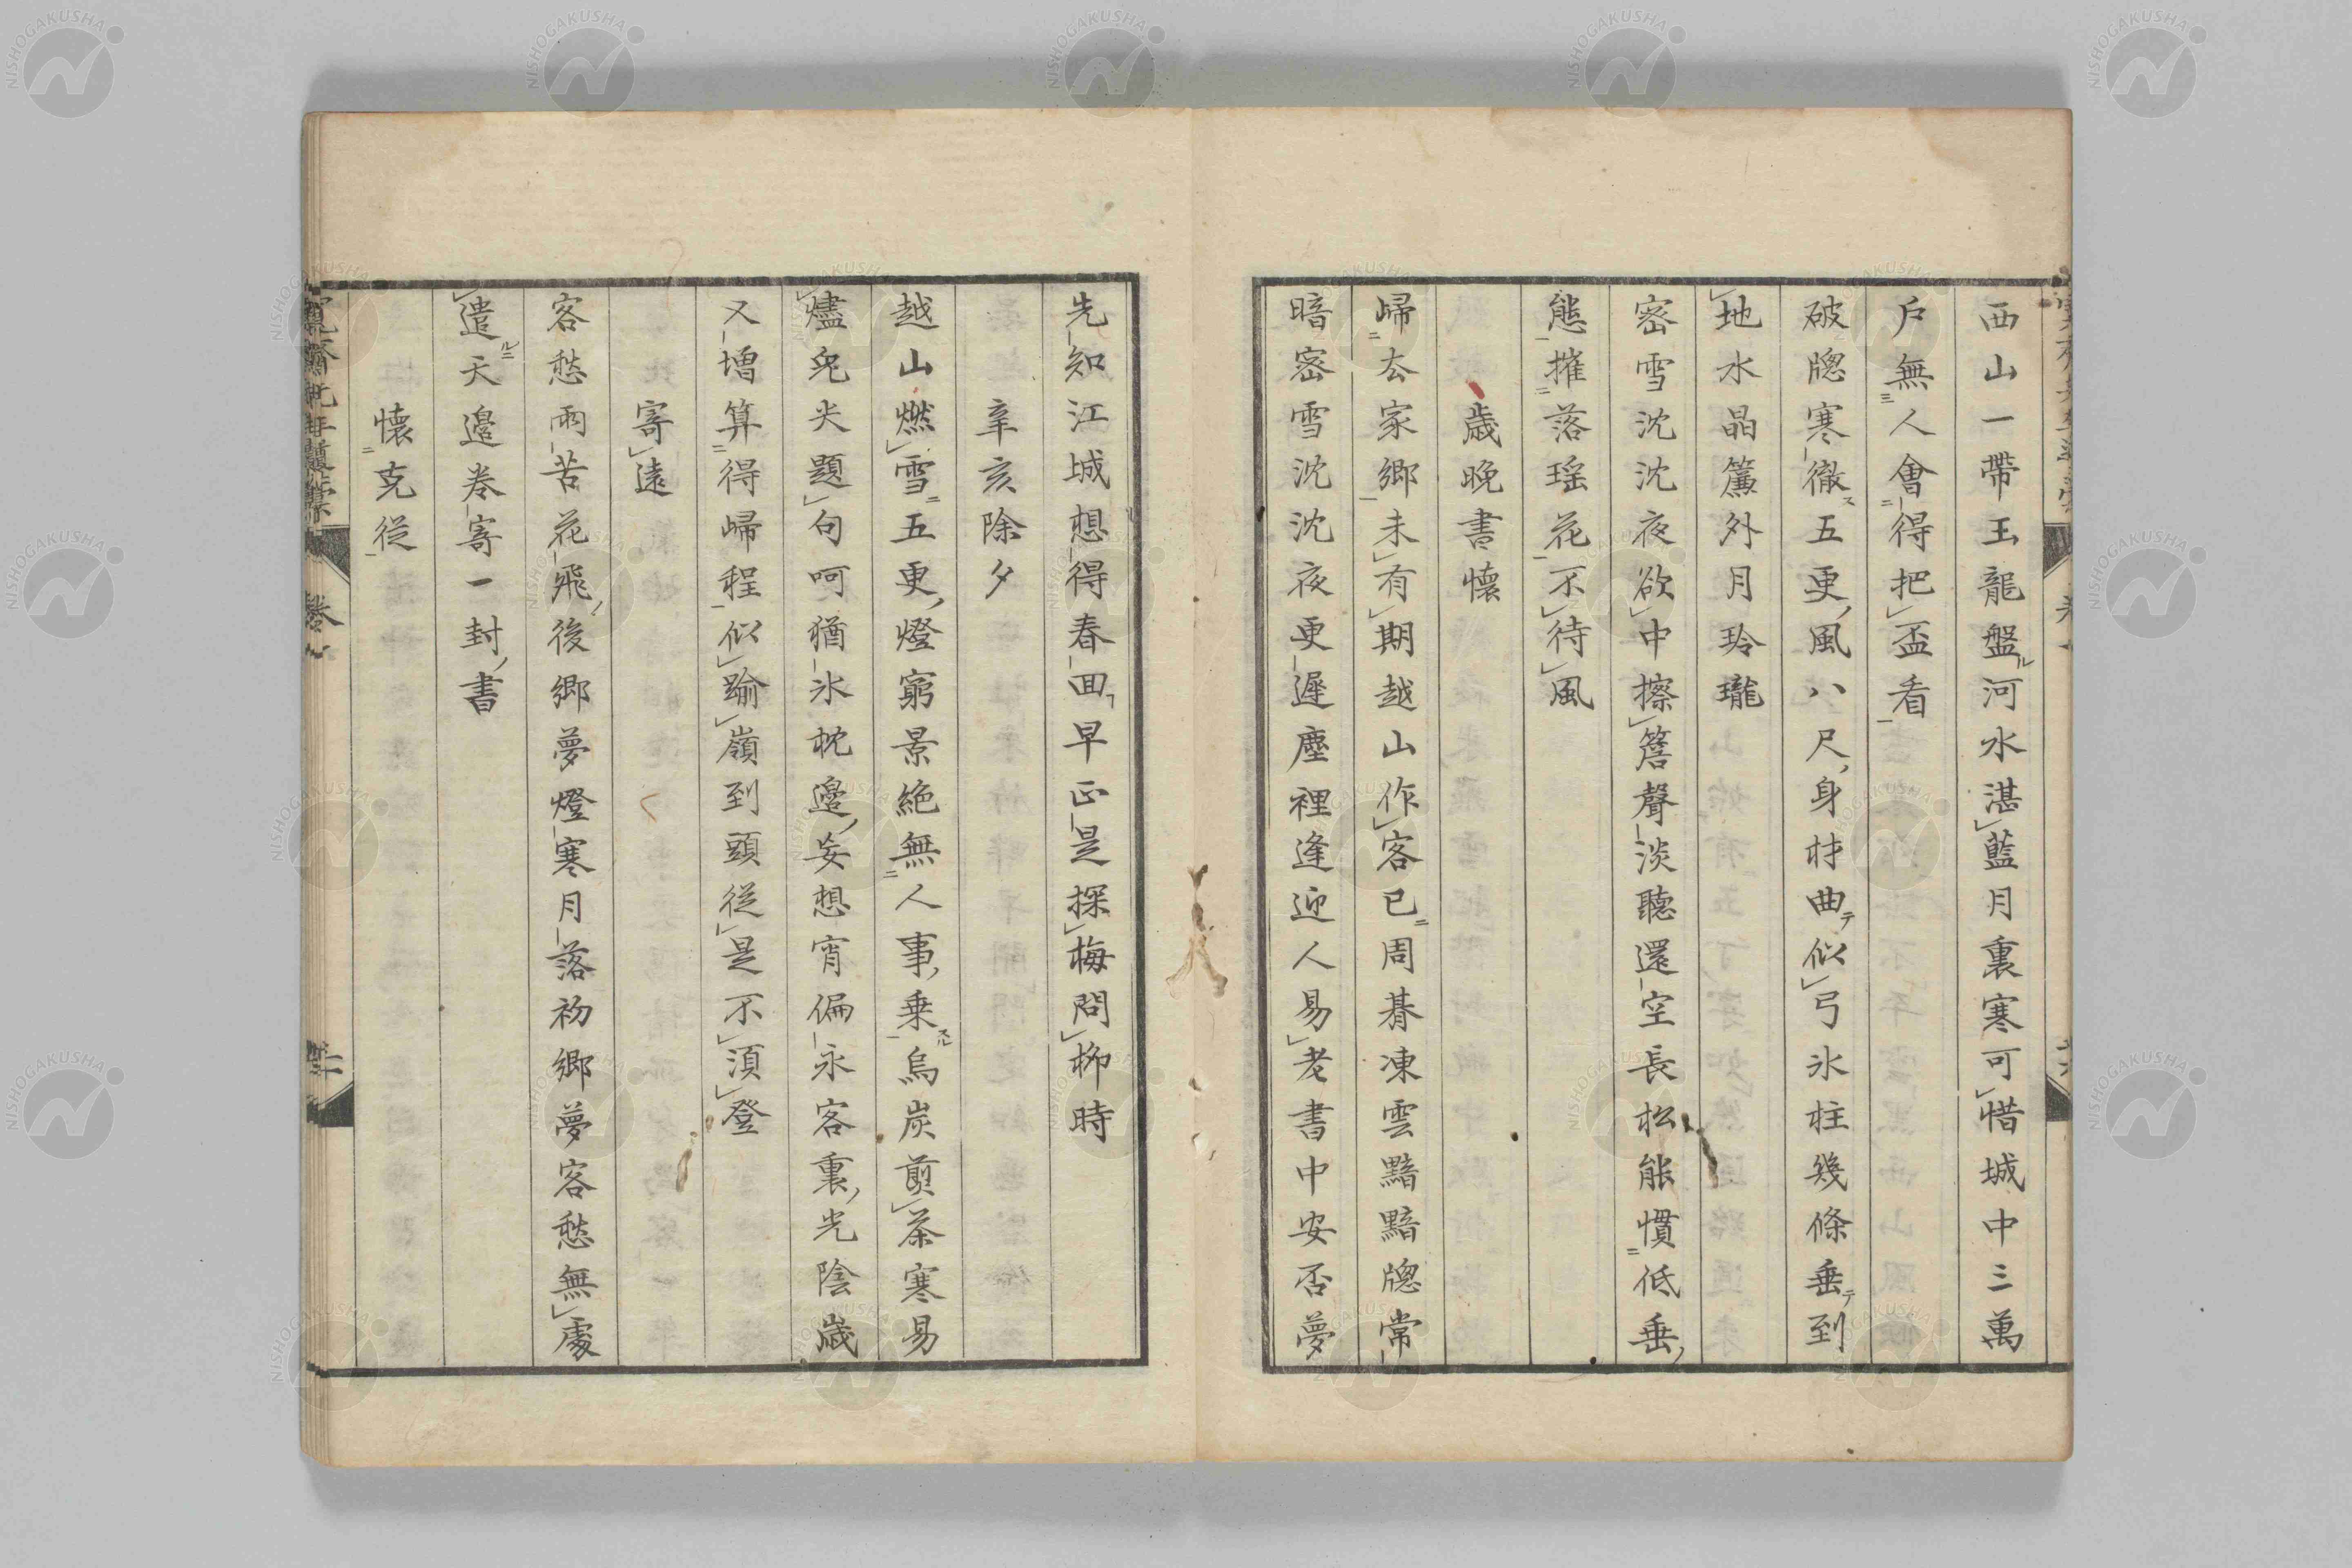 西山一帶玉龍盤河水湛藍月裏寒可惜城中三萬
戶無人會得把盃看
破牕寒徹五更風八尺身材曲似弓氷柱幾條垂到
地水晶簾外月玲瓏
密雪沈沈夜欲中擦簷聲淡聽還空長松能慣低垂
態摧落瑶花不待風
歳晩書懷
歸去家鄉未有期越山作客已周朞凍雲黯黯牕常
暗密雪沈沈夜更遲塵裡逢迎人易老書中安否夢
先知江城想得春回早正是探梅問柳時
辛亥除夕
越山燃雪五更燈窮景絶無人事乗烏炭煎茶寒易
燼兔尖題句呵猶氷枕邊妄想宵偏永客裏光陰歳
又増算得歸程似踰嶺到頭從是不須登
寄遠
客愁雨苦花飛後鄉夢燈寒月落初鄉夢客愁無處
遣天邉巻寄一封書
懷克從
NISHOGAKUSHA